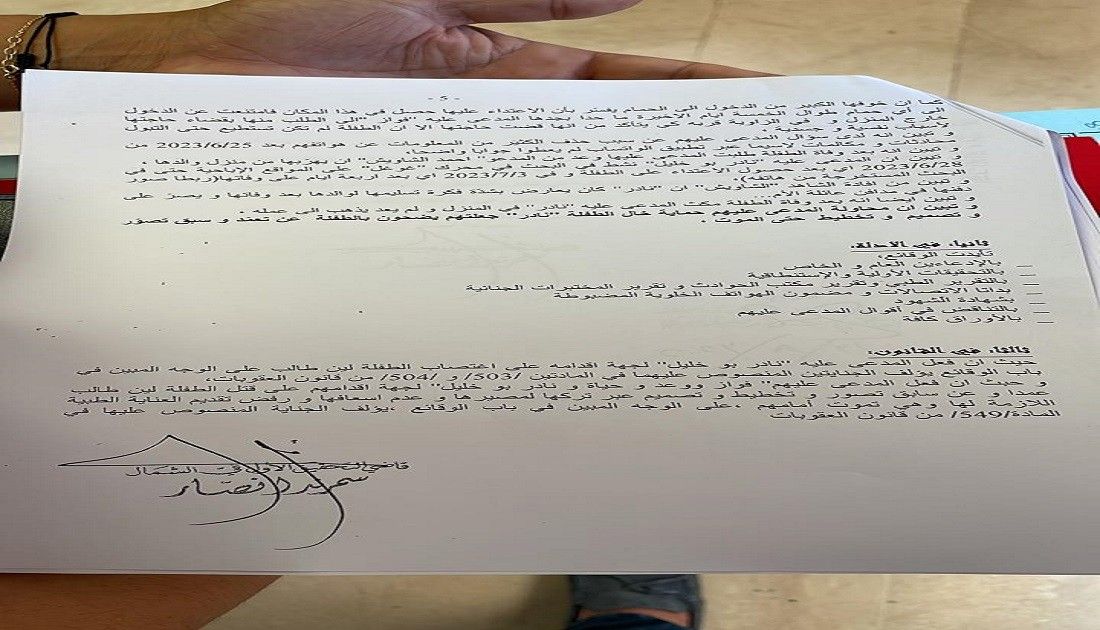 - 5 -
كما ان خوفها الكبير من الدخول الى الحمام يفسر بأن الاعتداء عليها حصل في هذا المكان فامتنعت عن الدخول
الى أي حمام طوال الخمسة ايام الاخيرة ما حدا بجدها المدعى عليه "فواز" الى الطلب منها بقضاء حاجتها
خارج المنزل و في الزاوية قربه كي يتأكد من انها قضت حاجتها الا ان الطفلة لم تكن تستطيع حتى التبول
لأسباب نفسية و جسدية.
و تبين انه لدى سؤال المدعى عليهم عن سبب حذف الكثير من المعلومات عن هواتفهم بعد 2023/6/25 من
محادثات و مكالمات لاسيما عبر تطبيق الواتساب لم يعطوا جوابا واضحا.
و تبين انه بعد وفاة الطفلة طلبت المدعى عليها وعد من المدعو" احمد الشاويش" ان يهربها من منزل والدها.
و تبين ان المدعى عليه "نادر بو خليل" بحث في اليوم في محرك "غوغل" على المواقع الاباحية حتى في
2023/6/28 اي بعد حصول الاعتداء على الطفلة و في 2023/7/3 اي بعد اربعة ايام على وفاتها(ربطا صور
البحث المستخرجة من هاتفه).
و تبين من افادة الشاهد "الشاويش" ان "نادر" كان يعارض بشدة فكرة تسليمها لوالدها بعد وفاتها و يصر على
دفنها في مدافن عائلة الأم.
و تبين ايضا انه بعد وفاة الطفلة مكث المدعى عليه "نادر" في المنزل و لم يعد يذهب الى عمله.
و تبين ان محاولة المدعى عليهم حماية خال الطفلة "نادر" جعلتهم يضحون بالطفلة عن تعمد و سبق تصور
و تصميم و مخطط حتى الموت.
ثانيا، في الادلة:
تأيدت الوقائع:
_ بالإدعاءين العام و الخاص
_ بالتحقيقات الأولية و الإستنطاقية
_ بالتقرير الطبي وتقرير مكتب الحوادث و تقرير المختبرات الجنائية
_ بداتا الاتصالات و مضمون الهواتف الخلوية المضبوطة
_ بشهادة الشهود
_ بالتناقض في أقوال المدعى عليهم
_ بالأوراق كافة
ثالثا، في القانون:
حيث ان فعل المدعى عليه "نادر بو خليل" لجهة اقدامه على اغتصاب الطفلة لين طالب على الوجه المبين في
باب الوقائع يؤلف الجنايتين المنصوص عليهما في المادتين /503/ و /504/ من قانون العقوبات،
و حيث ان فعل المدعى عليهم" فواز ووعد و حياة و نادر بو خليل" لجهة اقدامهم على قتل الطفلة لين طالب
عمدا و عن سابق تصور و تخطيط و تصميم عبر تركها لمصيرها و عدم اسعافها و رفض تقديم العناية الطبية
اللازمة لها وهي تموت أمامهم ،على الوجه المبين في باب الوقائع ،يؤلف الجناية المنصوص عليها في
المادة/549/ من قانون العقوبات
قاضي التحقيق الأول في الشمال
سمرندا نصار